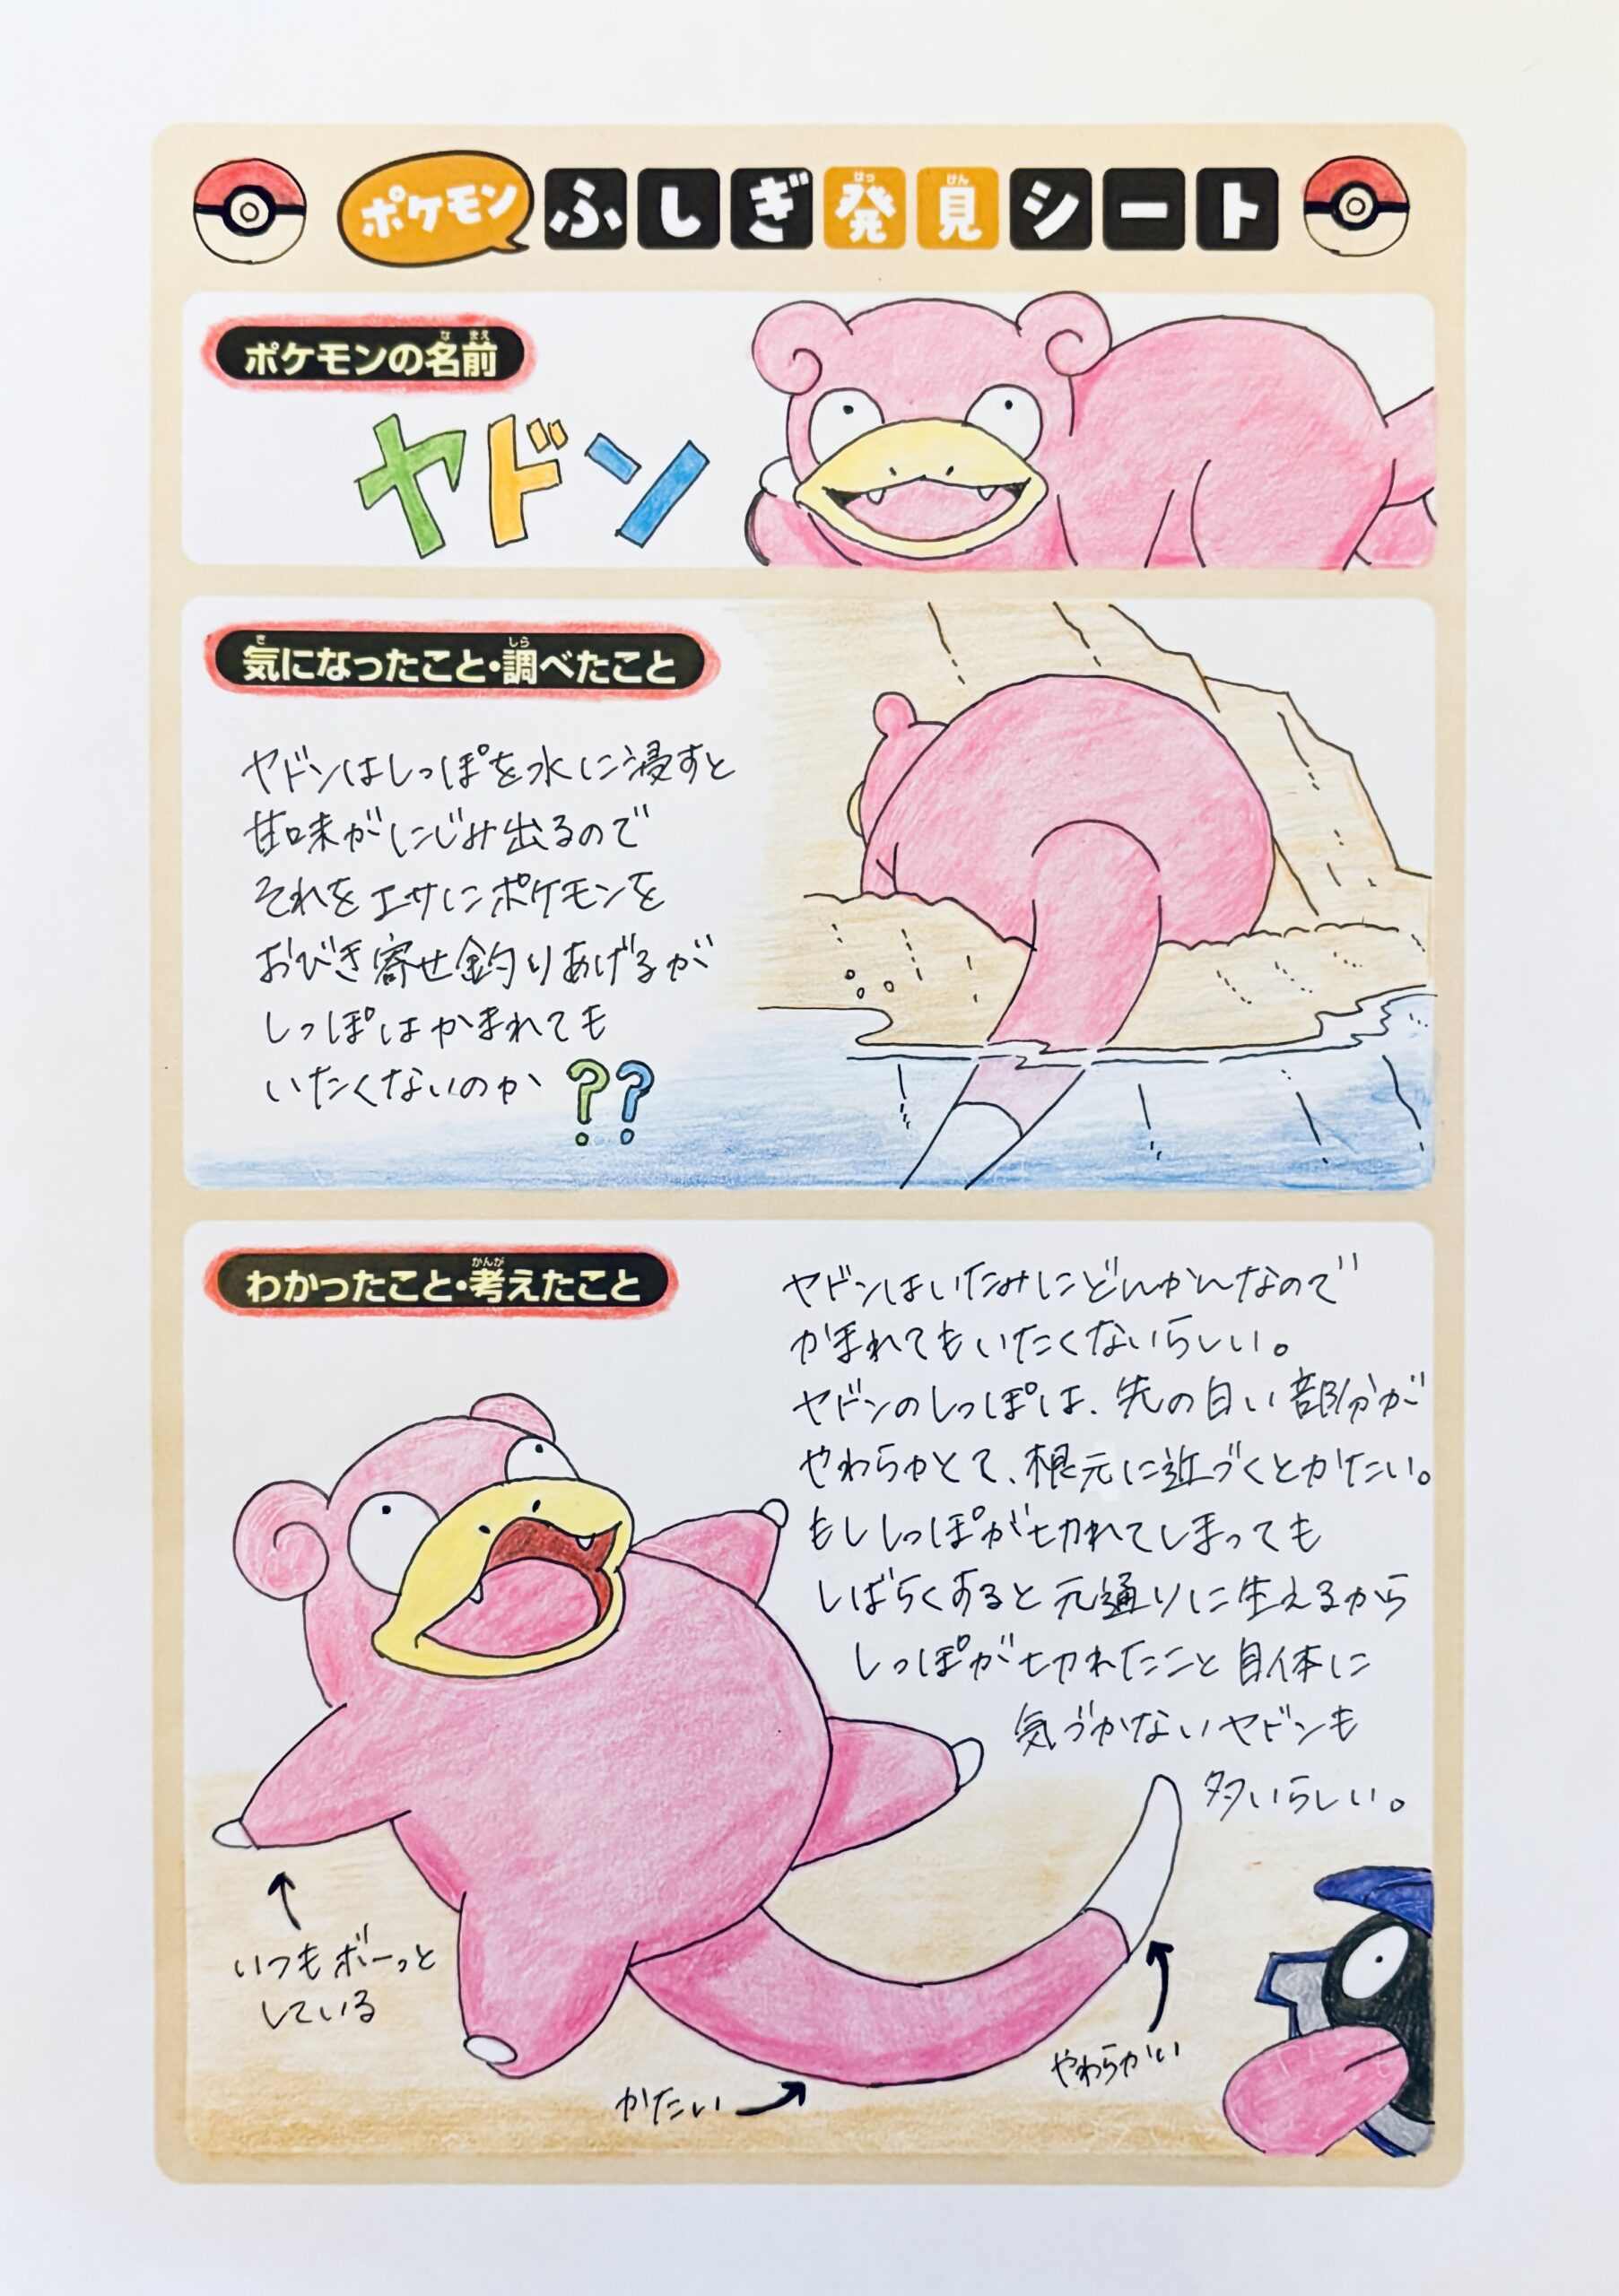 ポケモンふしぎ発見シート
ポケモンの名前
ヤドン
気になったこと・調べたこと
ヤドンはしっぽを水に浸すと
甘味がにじみ出るので
それをエサにポケモンを
おびき寄せ釣りあげるが
しっぽはかまれても
いたくないのか??
わかったこと・考えたこと
ヤドンはいたみにどんかんなので
かまれてもいたくないらしい。
ヤドンのしっぽは、先の白い部分が
やわらかとて、根元に近づくとかたい。
もししっぽが切れてしまっても
しばらくすると元通りに生えるから
しっぽが切れたこと自体に
気づかないヤドンも
多いらしい。
いつもボーっと
している
かたい
やわらかい